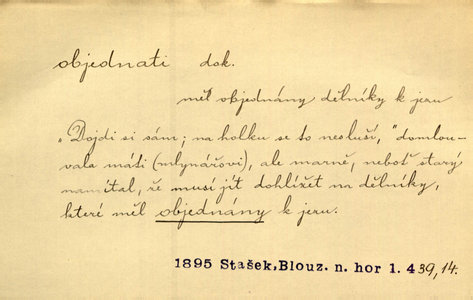 objednati dok.
měl objednány dělníky k jezu
„Dojdi si sám; na holku se to nesluší," domlou-
vala máti (mlynářovi), ale marně, neboť starý
namítal, že musí jít dohlížet na dělníky,
které měl objednány k jezu.
1895 Stašek, Blouz. n. hor 1. 439,14.